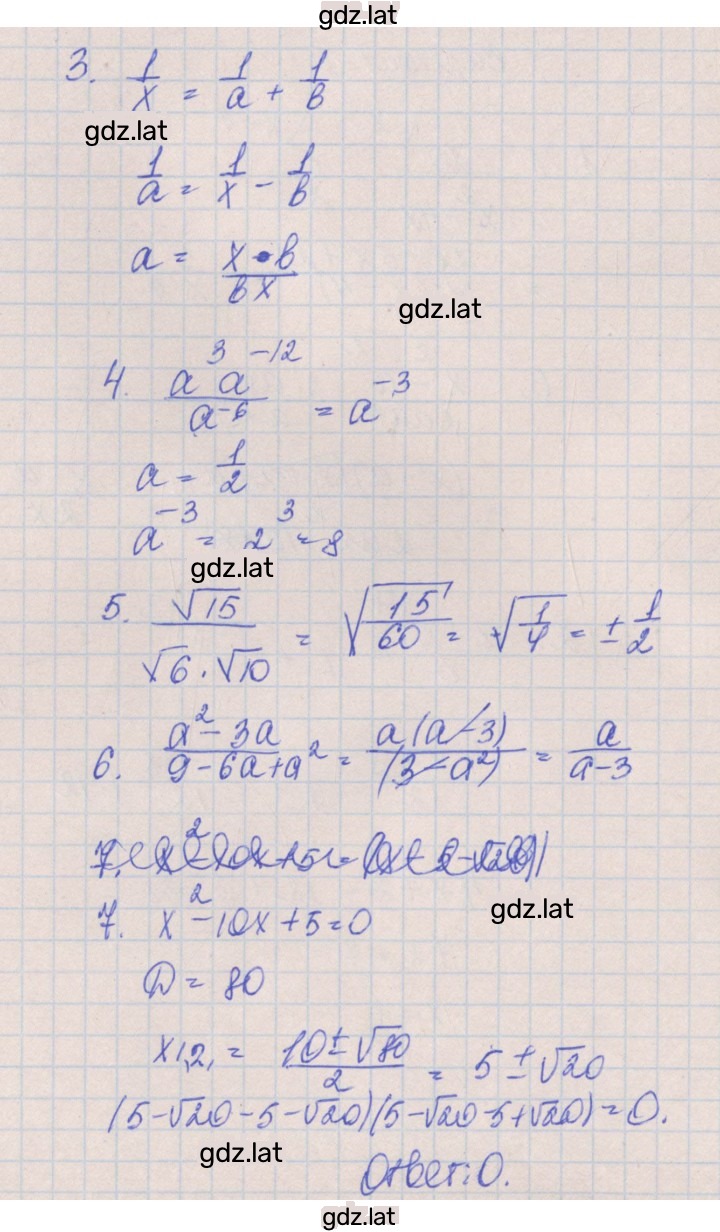 gdz.lat
3. 1/x = 1/a + 1/в
gdz.lat
1/a = 1/x - 1/в
a = x•в/вx
gdz.lat
4. a³a⁻¹²/a⁻⁶ = a⁻³
a = 1/2
a⁻³ = 2³ = 8
gdz.lat
5. √15/√6·√10 = √15/60 = √1/4 = ±1/2
6. a²-3a/9-6a+a² = a(a-3)/(3-a²) = a/a-3
gdz.lat
7. x²-10x+5=0
D = 80
x1,2, = 10±√80/2 = 5±√20
(5-√20-5-√20)(5-√20-5+√20)=0.
gdz.lat
Ответ: 0.
gdz.lat